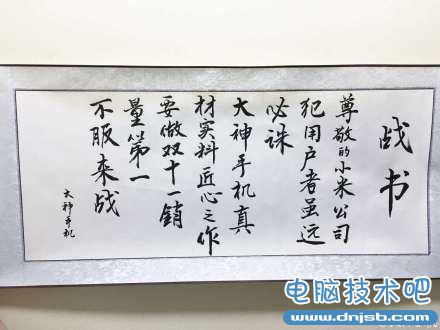 战书
尊敬的小米公司
犯用户者虽远
必诛
大神手机真
材实料匠心之作
要做双十一销
量第一
不服来战
大神手机
电脑技术吧
www.dnjsb.com